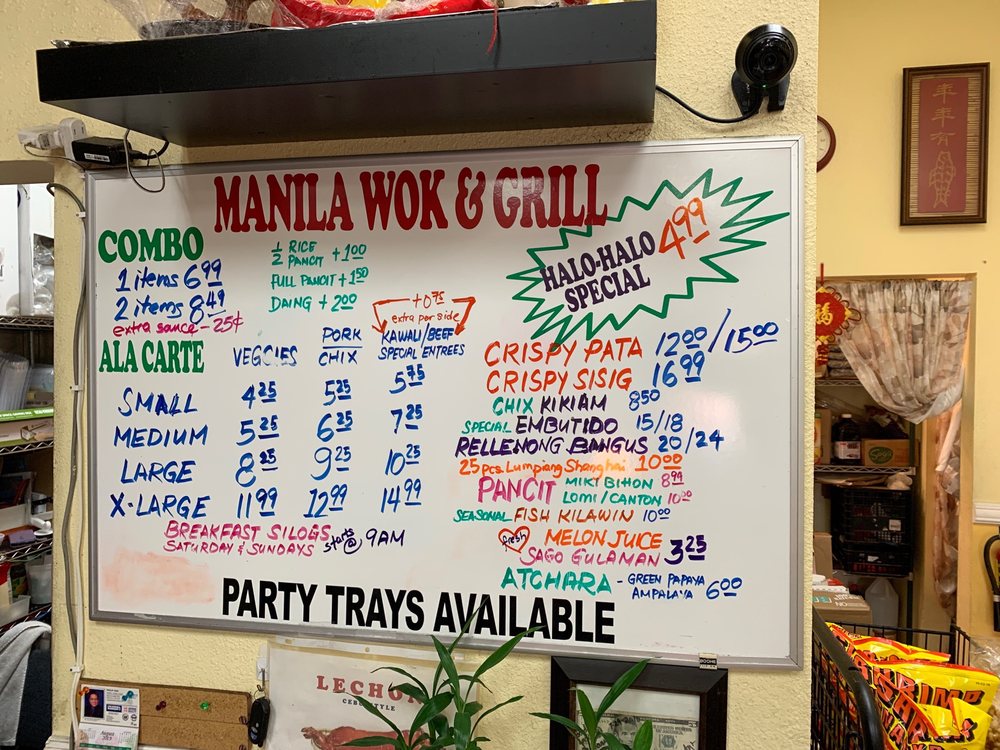 MANILA WOK & GRILL
COMBO
1 items 6.99
2 items 8.49
extra sauce - 25¢
1/2 RICE
PANCIT + 1.00
FULL PANCIT + 1.50
DAING + 2.00
HALO-HALO 4.99
SPECIAL
+0.75
extra per side
ALA CARTE
VEGGIES PORK CHIX KAWALI/BEEF SPECIAL ENTREES
SMALL 4.25 5.25 5.75
MEDIUM 5.25 6.25 7.25
LARGE 8.25 9.25 10.25
X-LARGE 11.99 12.99 14.99
BREAKFAST SILOGS
SATURDAY & SUNDAYS starts @ 9AM
CRISPY PATA 12.00/15.00
CRISPY SISIG 16.99
CHIX KIKIAM 8.50
SPECIAL EMBUTIDO 15/18
RELLENONG BANGUS 20/24
25 pcs. Lumpiang Shanghai 10.00
PANCIT MIKI BIHON 8.99
LOMI/CANTON 10.00
SEASONAL FISH KILAWIN 10.00
fresh MELON JUICE
SAGO GULAMAN 3.25
ATCHARA - GREEN PAPAYA
AMPALAYA 6.00
PARTY TRAYS AVAILABLE
LECHON
CEBU STYLE
年年有
SHRIMP
August